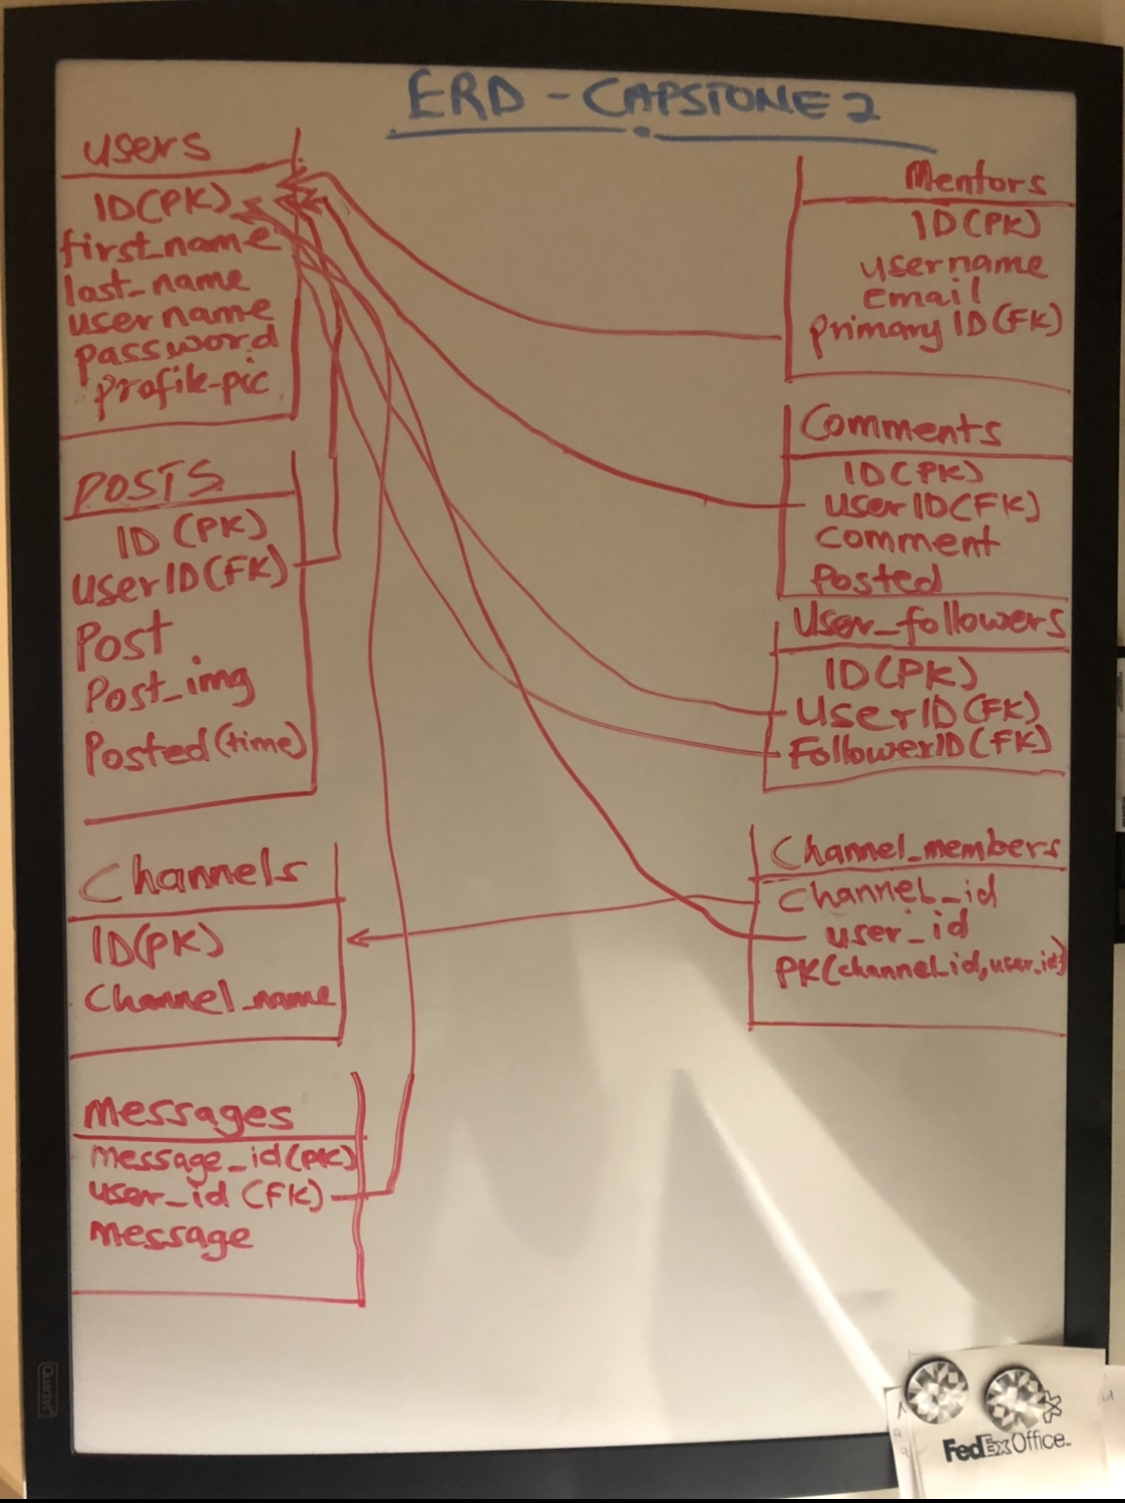 ERD - CAPSTONE 2
users
ID(PK)
first_name
last_name
username
password
profile-pic
POSTS
ID (PK)
UserID(FK)
Post
Post_img
Posted(time)
Channels
ID(PK)
Channel_name
Messages
Message_id(PK)
user_id (FK)
Message
Mentors
ID(PK)
username
email
primary ID(FK)
Comments
ID(PK)
UserID(FK)
Comment
Posted
User_followers
ID(PK)
UserID(FK)
FollowerID(FK)
Channel_members
Channel_id
user_id
PK(channel_id,user_id)
Quartet
FedExOffice